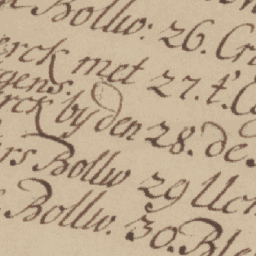 Bollw: 26. Cr
erck met 27. t'. C
gens:
rck by den 28. de
ers Bollw 29 Uen
Bollw. 30. Ble